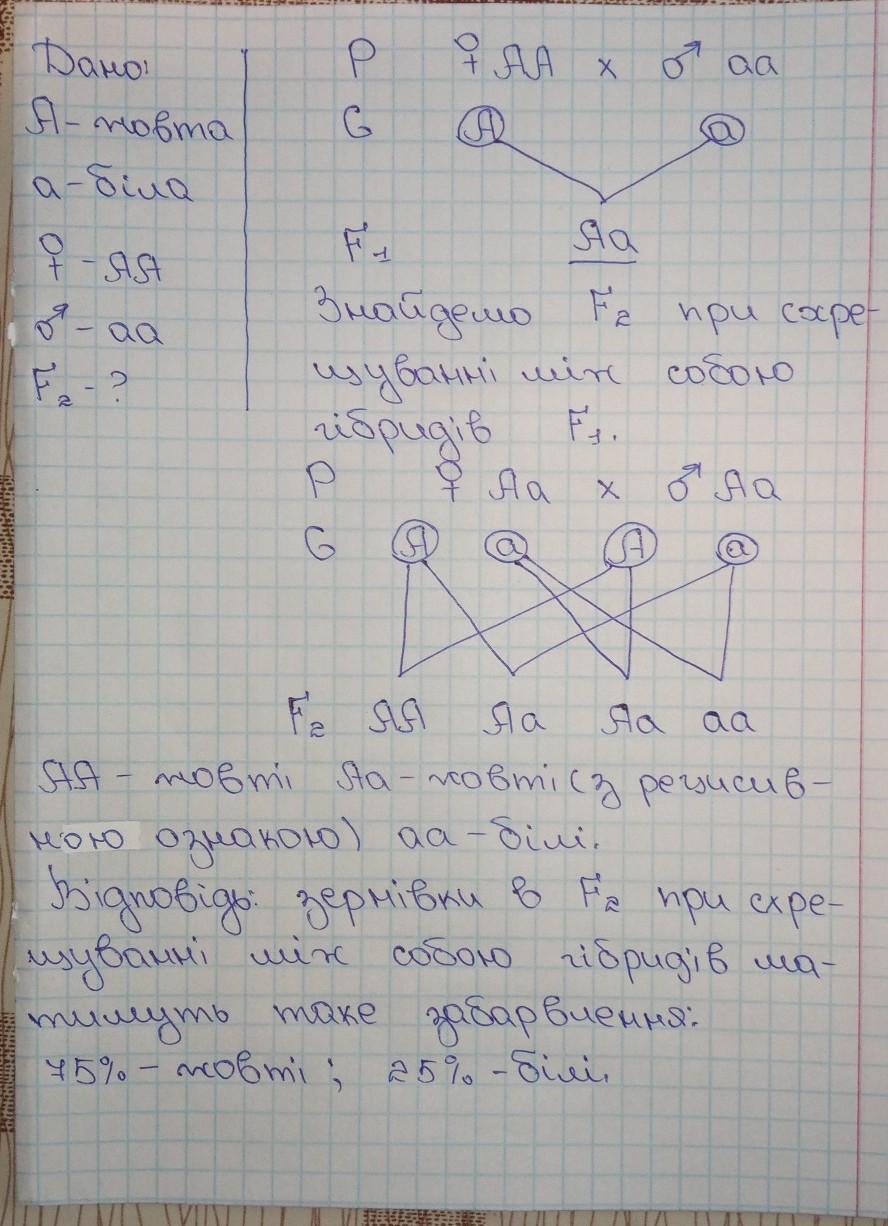 Дано:
А - жовта
а - біла
♀ - АА
♂ - аа
F₂ - ?
Р ♀ АА х ♂ аа
G А а
F₁ Аа
Знайдемо F₂ при схре-
щуванні між собою
гібридів F₁.
Р ♀ Аа х ♂ Аа
G А а А а
F₂ АА Аа Аа аа
АА - жовті Аа - жовті (з рецисив-
ною ознакою) аа - білі.
Відповідь: зернівки в F₂ при схре-
щуванні між собою гібридів ма-
тимуть таке забарвлення:
75% - жовті; 25% - білі.